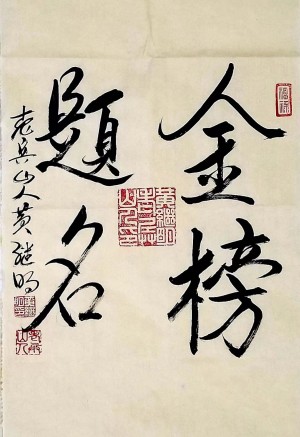 金榜
題名
老兵山人黄继明